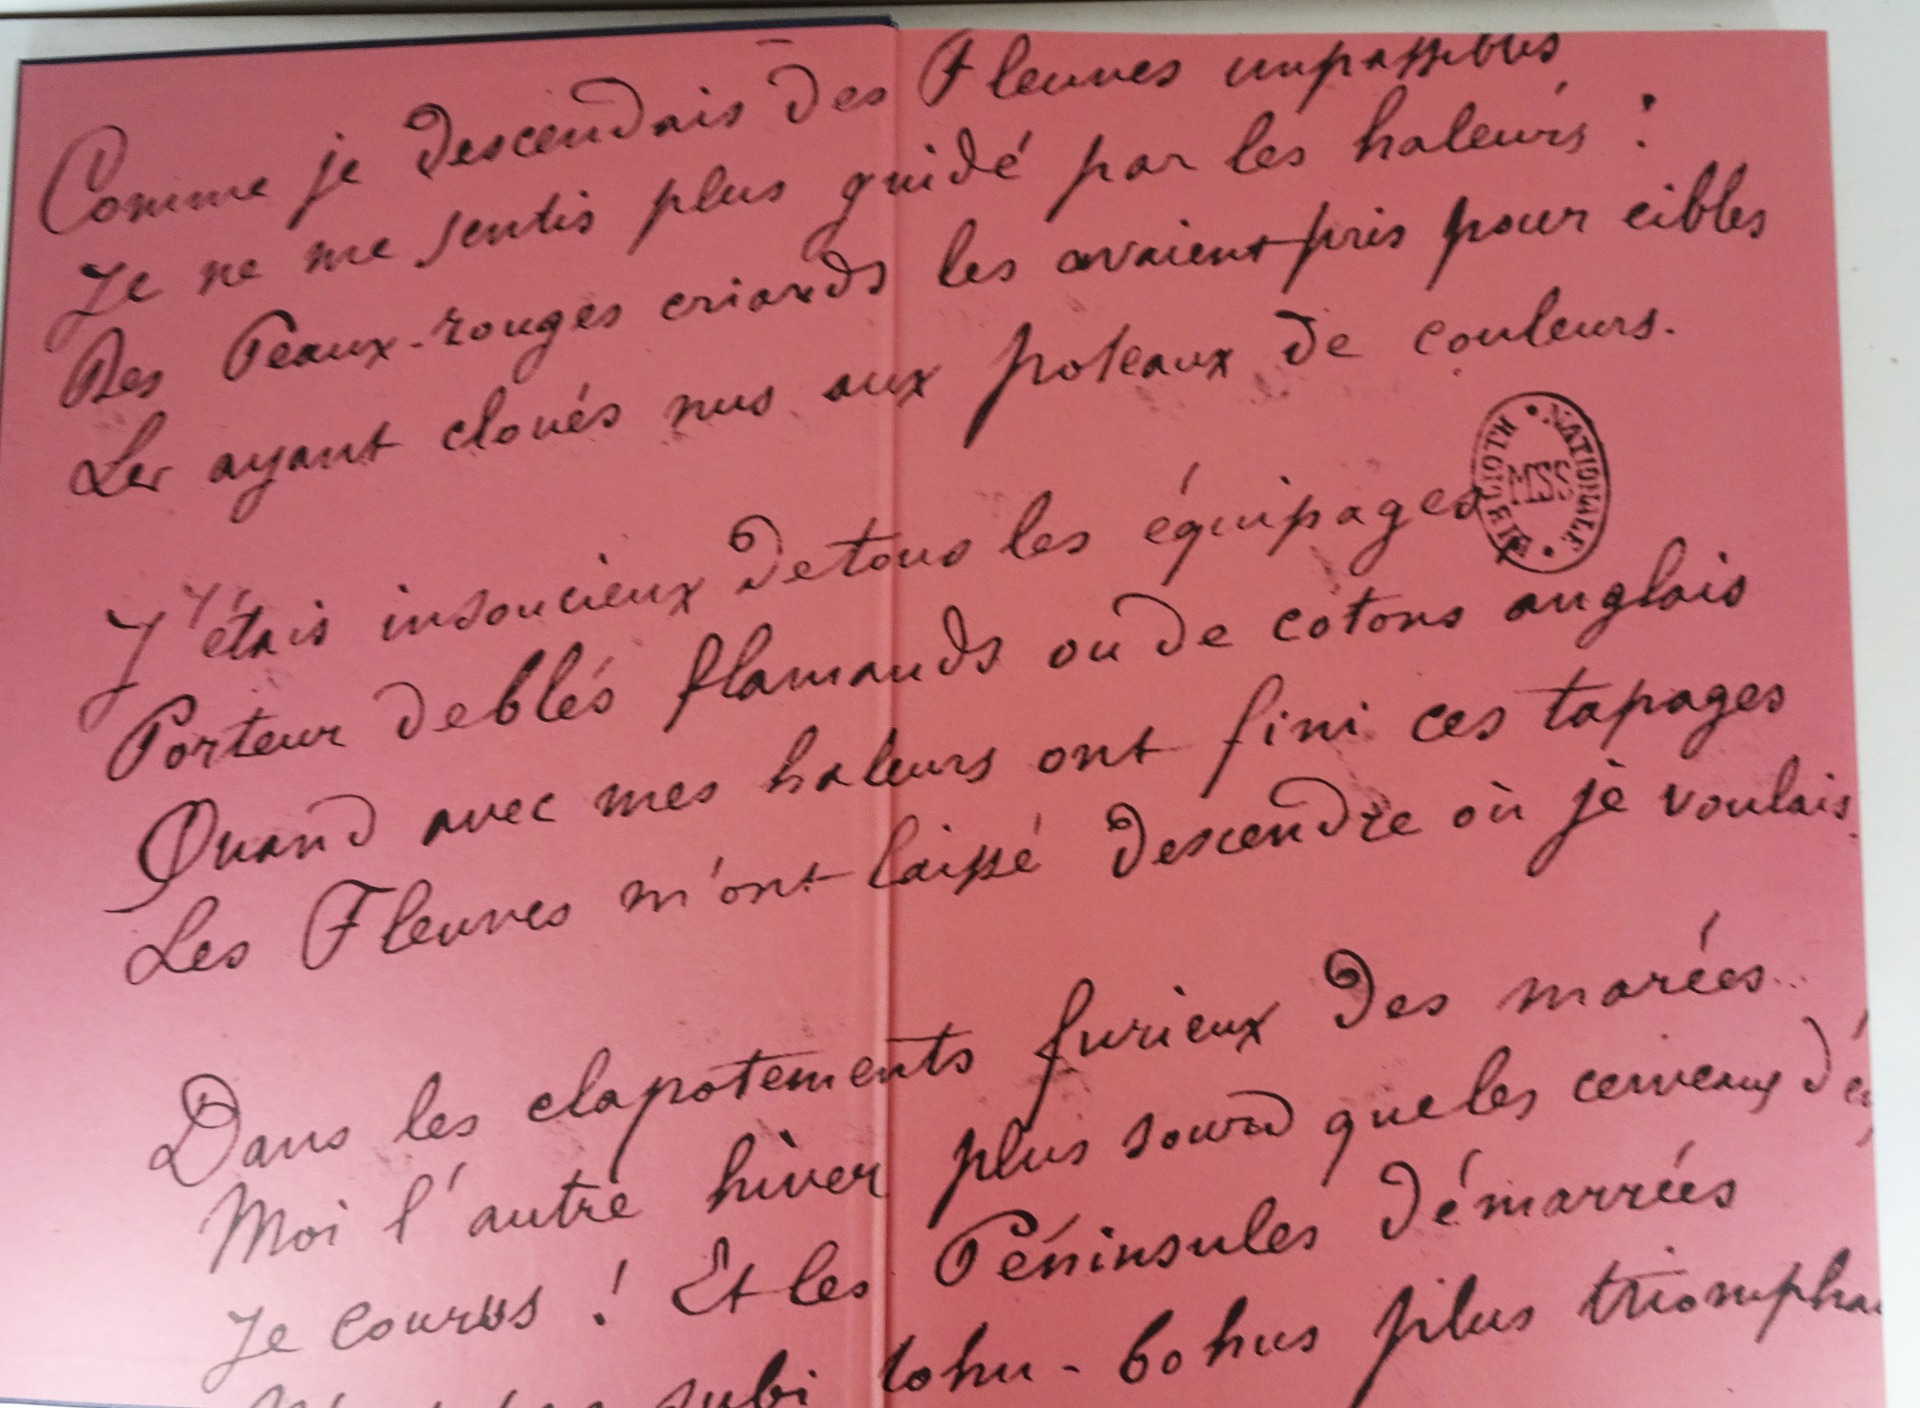 Comme je descendais des Fleuves impassibles
Je ne me sentis plus guidé par les haleurs :
Des Peaux-rouges criards les avaient pris pour cibles
Les ayant cloués nus aux poteaux de couleurs.
J'étais insoucieux de tous les équipages
BIBLIOTH NATIONALE
MSS
Porteur de blés flamands ou de cotons anglais
Quand avec mes haleurs ont fini ces tapages
Les Fleuves m'ont laissé descendre où je voulais.
Dans les clapotements furieux des marées
Moi l'autre hiver plus sourd que les cerveaux d'e
Je courus ! Et les Péninsules démarrées
subi tohu-bohus plus triompha